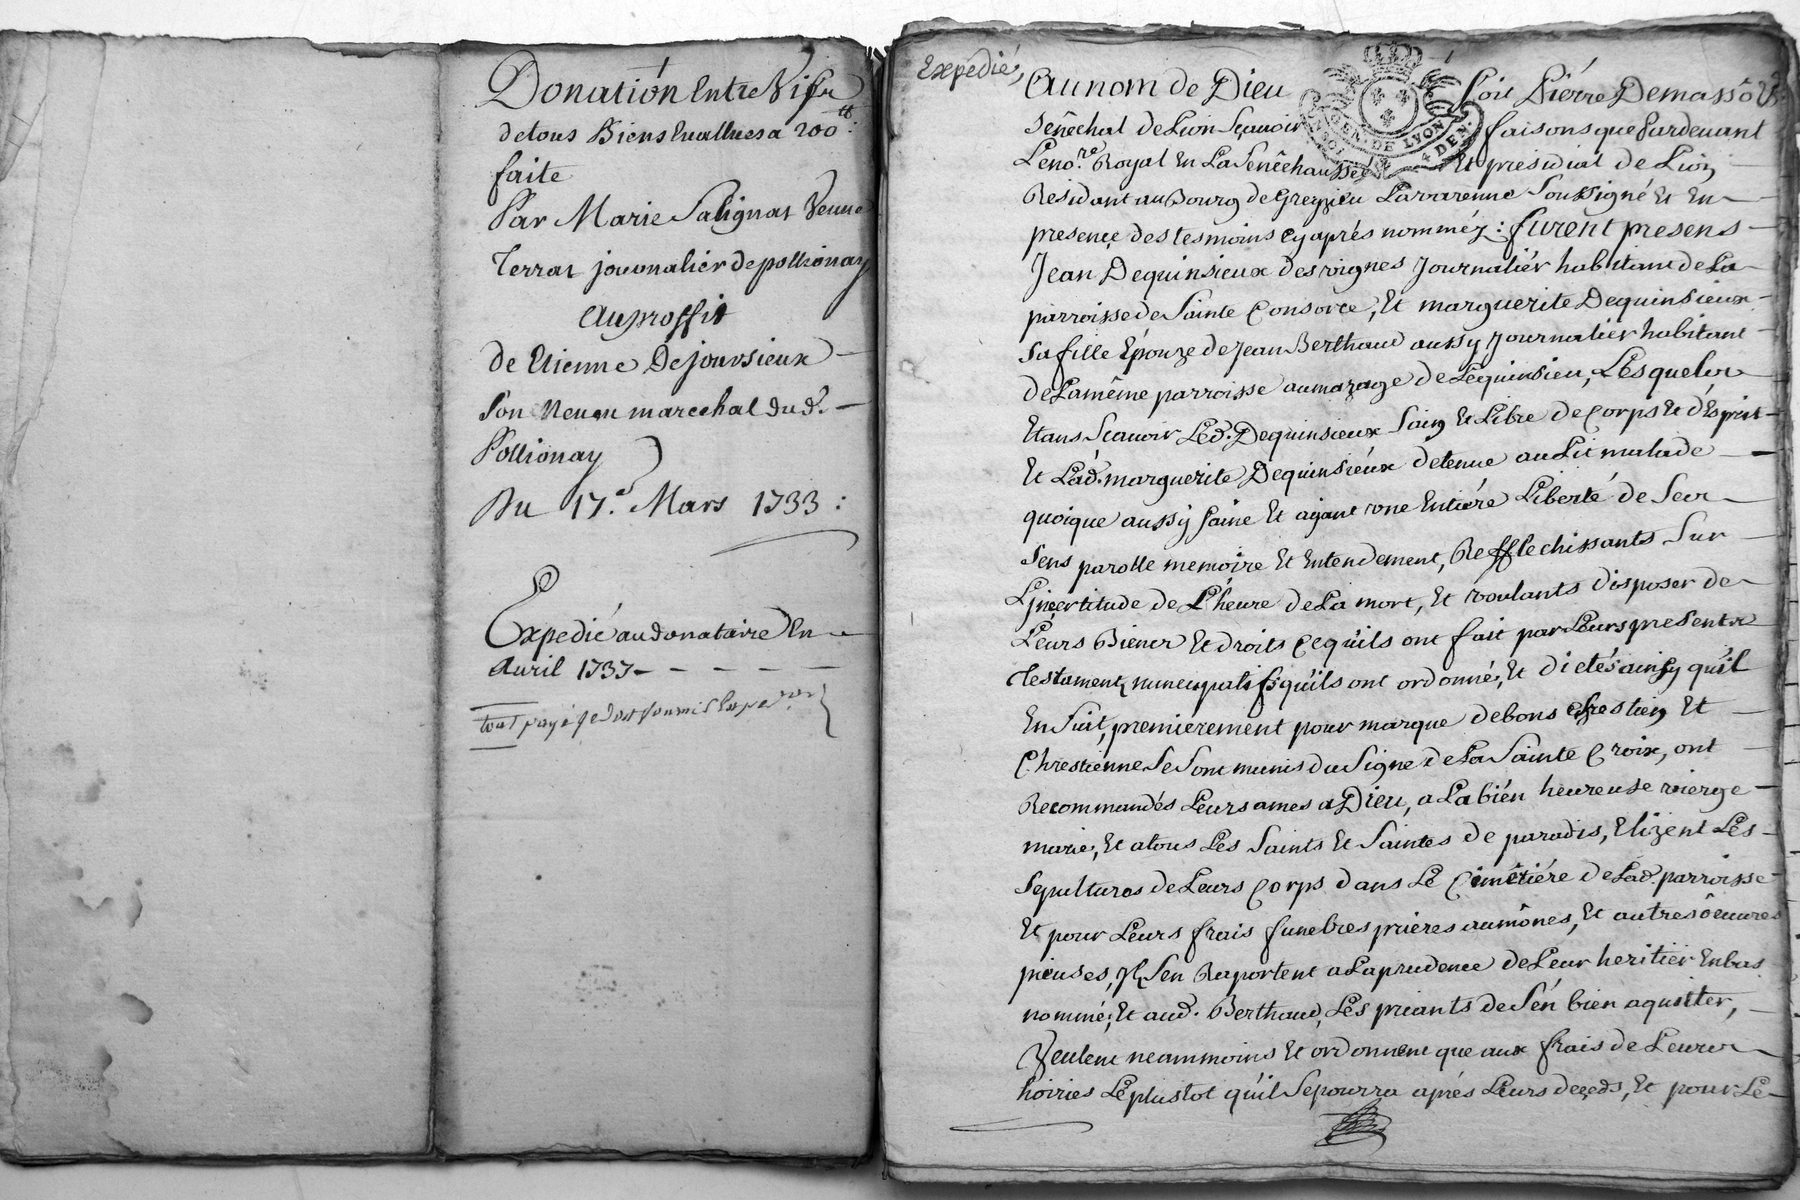 Donation Entre Vifs
de tous Biens Evallues a 200 tt :
faite
Par Marie Salignat Veuve
Terrat journalier de pollionay
Au proffit
de Etienne Dejoursieux
Son Neveu marechal dud.
Pollionay
Du 17.e Mars 1733 :
Expedié au donataire En
Avril 1737 - - - - -
tout payé je doit
Expedié,
Au nom de Dieu Soit Piérre Demasso
Sénéchal de Lion Sçavoir faisons que Pardevant
Le no.re Royal En La Senéchaussée Et presidial de Lion
Residant au Bourg de Grezieu Lavarenne Soussigné Et En
presence des tesmoins cy aprés nomméz : furent presens
Jean Dequinsieux des vignes Journaliér habitant de La
parroisse de Sainte Consorce, Et marguerite Dequinsieux
Sa fille Épouze de Jean Berthaud aussy Journaliér habitant
de La même parroisse au mazage de Lequinsieu, Lesquels
Etans Sçavoir Led. Dequinsieux Sain Et Libre de Corps Et d'Esprit
Et Lad. marguerite Dequinsieux detenue au Lit malade
quoique aussy Saine Et ayant une Entiére Liberté de Ses
Sens parolle memoire Et Entendement, Refflechissants Sur
L'jncertitude de L'heure de La mort, Et voulants disposer de
Leurs Biens Et droits Ce qu'ils ont fait par Leurs presents
testament nuncupatifs qu'ils ont ordonné, Et dictés ainsy qu'il
En Suit, premierement pour marque de bons chrestien Et
Chrestienne Se Sont munis du Signe de La Sainte Croix, ont
Recommandés Leurs ames a Dieu, a La bién heureuse vierge
marie, Et a tous Les Saints Et Saintes de paradis, Elizent Les
Sepultures de Leurs Corps dans Le Cimétiére de Lad. parroisse
Et pour Leurs frais funebres priéres aumônes, Et autres oeuvres
pieuses, jls S'en Raportent a La prudence de Leur heritiér En bas
nommé, Et aud. Berthaud, Les priants de S'en bien aquitter,
Veulent neammoins Et ordonnent que aux frais de Leurs
hoiries Le plustot qu'il Se pourra aprés Leurs deceds, Et pour Le
GEN. DE LYON
4 DEN.